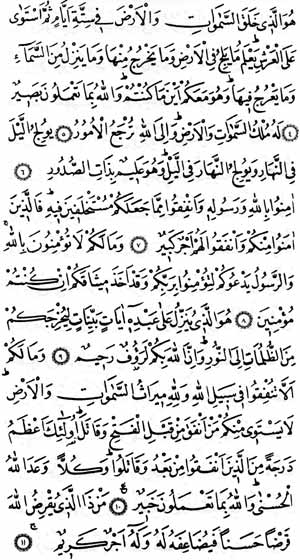 هُوَ الَّذِي خَلَقَ السَّمٰوَاتِ وَالْاَرْضَ فِي سِتَّةِ اَيَّامٍ ثُمَّ اسْتَوٰى
عَلَى الْعَرْشِ يَعْلَمُ مَا يَلِجُ فِي الْاَرْضِ وَمَا يَخْرُجُ مِنْهَا وَمَا يَنْزِلُ مِنَ السَّمَاءِ
وَمَا يَعْرُجُ فِيهَا وَهُوَ مَعَكُمْ اَيْنَ مَا كُنْتُمْ وَاللهُ بِمَا تَعْمَلُونَ بَصِيرٌ
﴿٤﴾ لَهُ مُلْكُ السَّمٰوَاتِ وَالْاَرْضِ وَاِلَى اللهِ تُرْجَعُ الْاُمُورُ ﴿٥﴾ يُولِجُ الَّيْلَ
فِي النَّهَارِ وَيُولِجُ النَّهَارَ فِي الَّيْلِ وَهُوَ عَلِيمٌ بِذَاتِ الصُّدُورِ ﴿٦﴾
اٰمِنُوا بِاللهِ وَرَسُولِهِ وَاَنْفِقُوا مِمَّا جَعَلَكُمْ مُسْتَخْلَفِينَ فِيهِ فَالَّذِينَ
اٰمَنُوا مِنْكُمْ وَاَنْفَقُوا لَهُمْ اَجْرٌ كَبِيرٌ ﴿٧﴾ وَمَا لَكُمْ لَا تُؤْمِنُونَ بِاللهِ
وَالرَّسُولُ يَدْعُوكُمْ لِتُؤْمِنُوا بِرَبِّكُمْ وَقَدْ اَخَذَ مِيثَاقَكُمْ اِنْ كُنْتُمْ
مُؤْمِنِينَ ﴿٨﴾ هُوَ الَّذِي يُنَزِّلُ عَلٰى عَبْدِهِ اٰيَاتٍ بَيِّنَاتٍ لِيُخْرِجَكُمْ
مِنَ الظُّلُمَاتِ اِلَى النُّورِ وَاِنَّ اللهَ بِكُمْ لَرَؤُفٌ رَحِيمٌ ﴿٩﴾ وَمَا لَكُمْ
اَلَّا تُنْفِقُوا فِي سَبِيلِ اللهِ وَلِلّٰهِ مِيرَاثُ السَّمٰوَاتِ وَالْاَرْضِ
لَا يَسْتَوِي مِنْكُمْ مَنْ اَنْفَقَ مِنْ قَبْلِ الْفَتْحِ وَقَاتَلَ اُولٰئِكَ اَعْظَمُ
دَرَجَةً مِنَ الَّذِينَ اَنْفَقُوا مِنْ بَعْدُ وَقَاتَلُوا وَكُلًّا وَعَدَ اللهُ
الْحُسْنٰى وَاللهُ بِمَا تَعْمَلُونَ خَبِيرٌ ﴿١٠﴾ مَنْ ذَا الَّذِي يُقْرِضُ اللهَ
قَرْضًا حَسَنًا فَيُضَاعِفَهُ لَهُ وَلَهُ اَجْرٌ كَرِيمٌ ﴿١١﴾